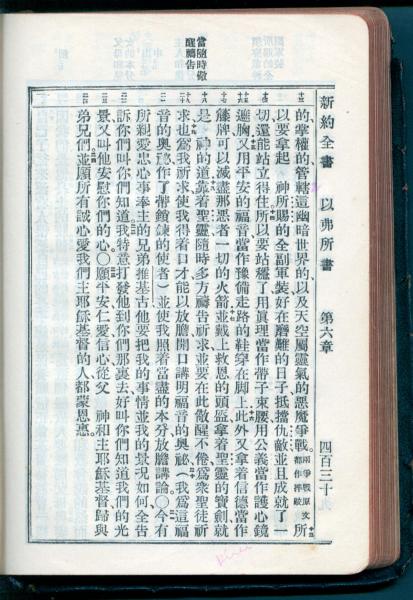 新約全書　以弗所書　第六章　四百三十九
當隨時儆
醒禱告
的掌權的管轄這幽暗世界的、以及天空屬靈氣的惡魔爭戰。兩爭戰原文都作摔跤十三所
以要拿起　神所賜的全副軍裝、好在磨難的日子、抵擋仇敵、並且成就了一
切、還能站立得住。十四所以要站穩了、用眞理當作帶子束腰、用公義當作護心鏡
遮胸、十五又用平安的福音、當作豫備走路的鞋穿在脚上、十六此外又拿着信德當作
籐牌、可以滅盡那惡者一切的火箭、十七並戴上救恩的頭盔、拿着聖靈的寶劍、就
是　神的道、十八靠着聖靈、隨時多方禱告祈求、並要在此儆醒不倦、爲衆聖徒祈
求、十九也爲我祈求、使我得着口才、能以放膽、開口講明福音的奧祕、二十（我爲這福
音的奧祕、作了帶鎖鍊的使者）並使我照着當盡的本分、放膽講論。○二一今有
所親愛忠心事奉主的兄弟推基古、他要把我的事情、並我的景況如何、全告
訴你們、叫你們知道。二二我特意打發他到你們那裏去、好叫你們知道我們的光
景、又叫他安慰你們的心。○二三願平安、仁愛、信心、從父　神和主耶穌基督、歸與
弟兄們。二四並願所有誠心愛我們主耶穌基督的人、都蒙恩惠。